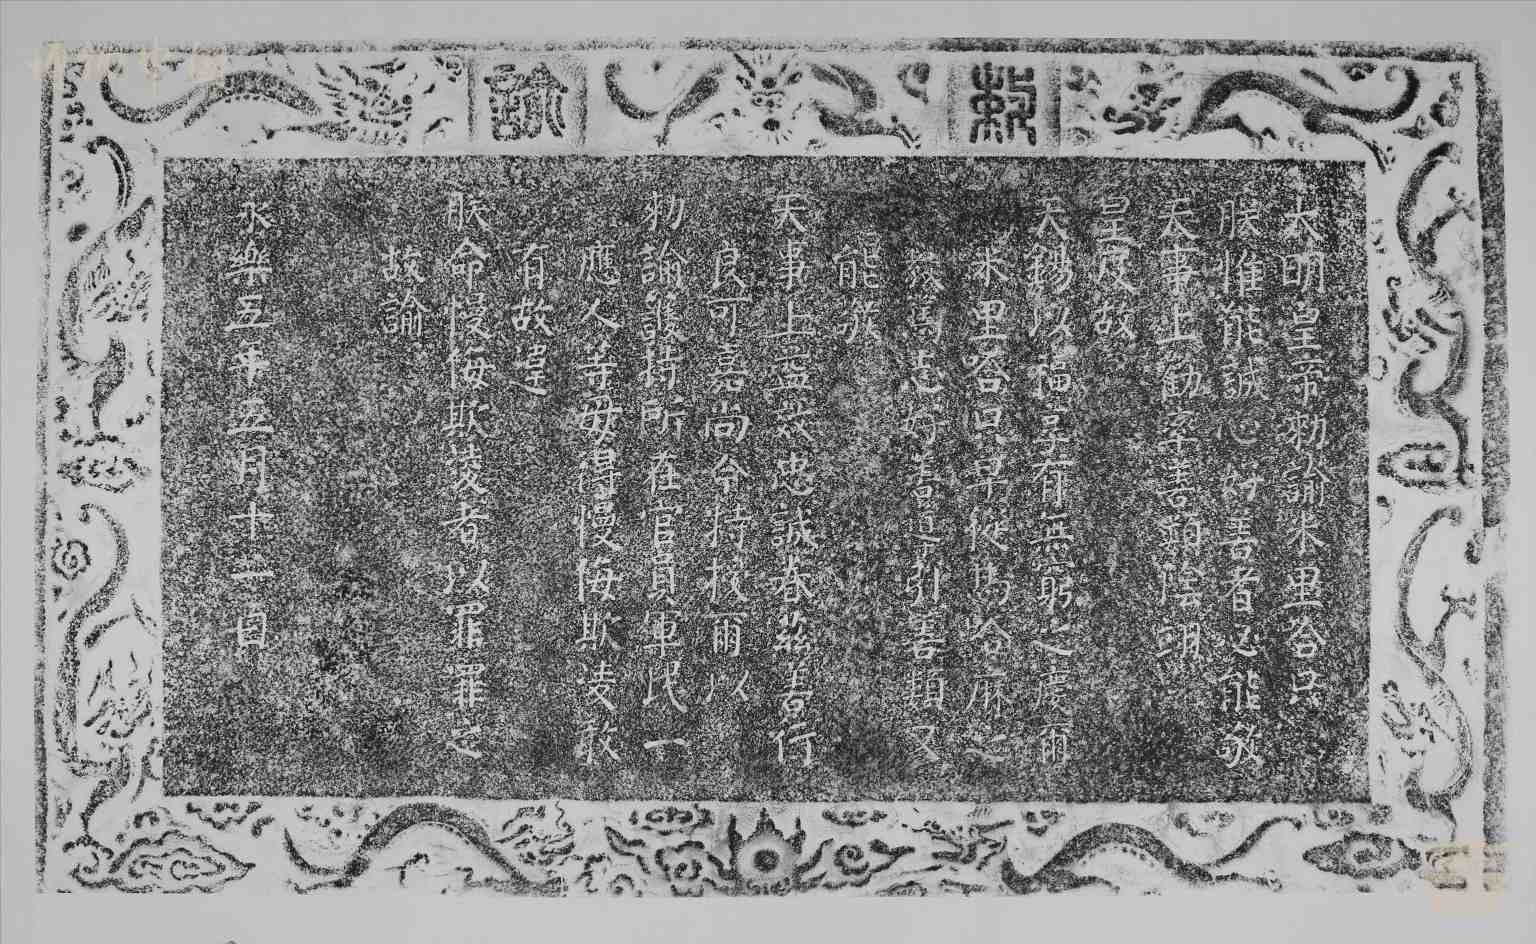 敕諭
大明皇帝勑諭米里哈只
朕惟能誠心好善者必能敬
天事上勸率善類陰翊
皇度故
天錫以福享有無窮之慶爾
米里哈只早從馬哈麻之
教篤志好善導引善類又
能敬
天事上益效忠誠眷茲善行
良可嘉尚今特授爾以
勑諭護持所在官員軍民一
應人等毋得慢侮欺凌敢
有故違
朕命慢侮欺凌者以罪罪之
故諭
永樂五年五月十一日